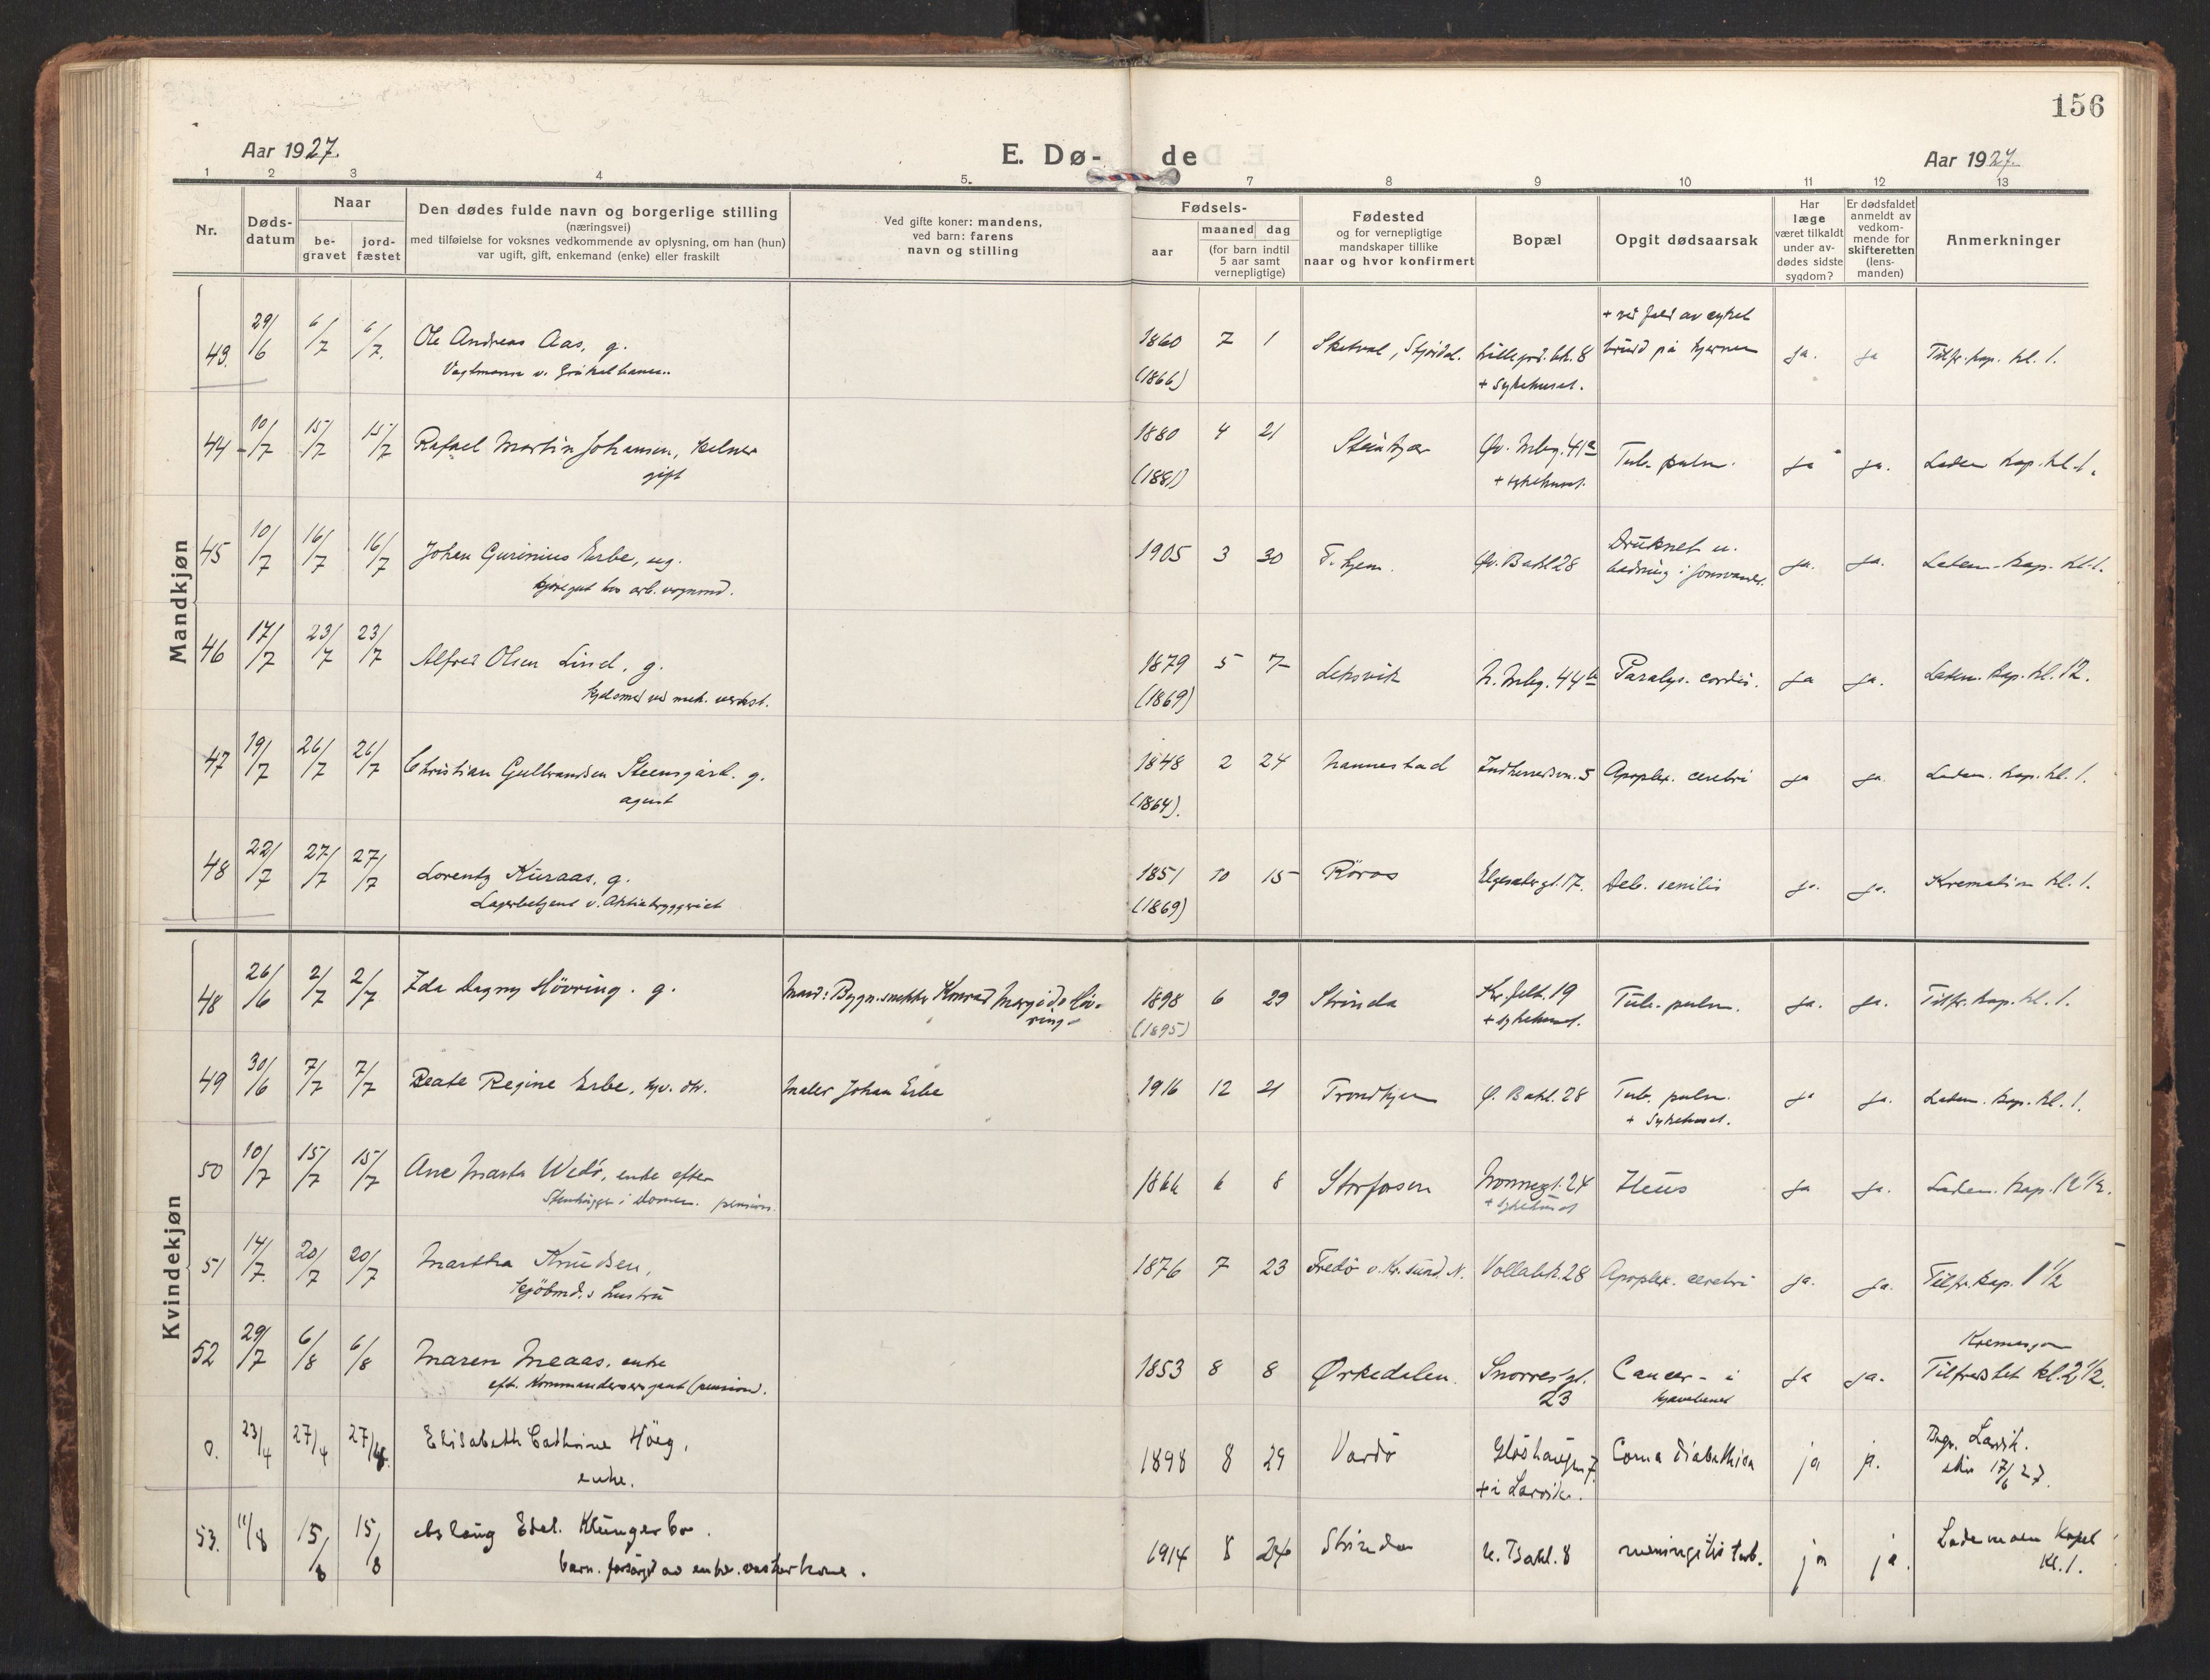 156
Aar 1927.
E. Dø- de
Aar 1927.
1 2 3 4 5. 7 8 9 10 11 12 13
Nr.
Døds-
datum
Naar
be-
gravet
jord-
fæstet
Den dødes fulde navn og borgerlige stilling
(næringsvei)
med tilføielse for voksnes vedkommende av oplysning, om han (hun)
var ugift, gift, enkemand (enke) eller fraskilt
Ved gifte koner: mandens,
ved barn: farens
navn og stilling
Fødsels-
aar
maaned dag
(for barn indtil
5 aar samt
vernepligtige)
Fødested
og for vernepligtige
mandskaper tillike
naar og hvor konfirmert
Bopæl
Opgit dødsaarsak
Har
læge
været tilkaldt
under av-
dødes sidste
sygdom?
Er dødsfaldet
anmeldt av
vedkom-
mende for
skifteretten
(lens-
manden)
Anmerkninger
Mandkjøn
43. 29/6 6/7 6/7. Ole Andreas Aas, g. 1860 7 1 Skatval, Stjørdal. + ved fald av cykel
Vagtmann v. Gråkalbanen. (1866) + Sykehuset. brudd på hjernen ja. ja Tilfr. kap. kl. 1.
44 10/7 15/7 15/7 Rafael Martin Johansen, kelner 1880 4 21 Steinkjær Øv. Mbg. 41a Tub. pulm. ja ja. Ladem. kap. kl. 1.
gift (1881) + sykehuset.
45 10/7 16/7 16/7 Johan Gurinius Erbe, ug. 1905 3 30 T.hjem. Øv. Bakl 28 Druknet u. ja. ja. Ladem. kap. kl. 1.
kjøregut hos arb. vognmd. badning i Jonsvandet.
46 17/7 23/7 23/7 Alfred Olsen Lind, g. 1879 5 7 Leksvik N. Mbg. 44b Paralys. cordis. ja ja. Ladem. kap. kl. 12.
kjelsmed ved mek. verkst. (1869)
47 19/7 26/7 26/7 Christian Gulbrandsen Steensgård. g. 1848 2 24 Nannestad Indherredsvn. 5 Apoplex. cerebri ja ja. Ladem. kap. kl. 1.
agent (1864).
48 22/7 27/7 27/7 Lorentz Kuraas, g. 1851 10 15 Röros Elgesetergt. 17. Deb. senilis ja. ja. Kremation kl. 1.
Lagerbetjent v. Aktiebryggeriet (1869)
Kvindekjøn
48 26/6 2/7 2/7 Ida Dagny Hövring. g. Mand: Bygn.snekker Konrad Höv- 1898 6 29 Strinda Kr.felt. 19 Tub. pulm. ja. ja. Tilfr. kap. kl. 1.
ring (1895) + sykehuset.
49 30/6 7/7 7/7 Beate Regine Erbe, hjv. dtr. Maler Johan Erbe 1916 12 21 Trondhjem Ø. Bakl. 28 Tub. pulm. ja ja. Ladem. kap. kl. 1.
+ Sykehuset.
50 10/7 15/7 15/7 Ane Marta Wedö, enke efter 1866 6 8 Storfosen Nonnegt. 24 Ileus ja ja. Ladem. kap. 12 1/2.
Stenhugger i Domen. pension. + sykehuset
51 14/7. 20/7 20/7 Martha Knudsen, 1876 7 23 Fredö v. Kr.sund. N. Vollabk. 28 Apoplex. cerebri ja. ja. Tilfr. kap. 1 1/2
Kjöbmd.s hustru
52 29/7 6/8 6/8 Maren Meaas, enke 1853 8 8 Ørkedalen. Snorresgt. Cancer i ja ja. Kremasjon
eft. Kommandersergeant (pension). 23 Tilfredshet kl. 2 1/2.
0. 23/4 27/4 27/4. Elisabeth Cathrine Höeg, 1898 8 29 Vardö Glöshaugen 7 Coma diabethica ja ja. Begr. Larvik.
enke. + i Larvik. 17/6 27.
53. 11/8 15/8 15/8 Aslaug Edel. Klungerbo. 1914 8 24 Strinda N. Bakl. 8 meningitis tub. ja ja. Lademoen Kapel
barn. forsörget av enke. vaskerkone. Kl. 1.